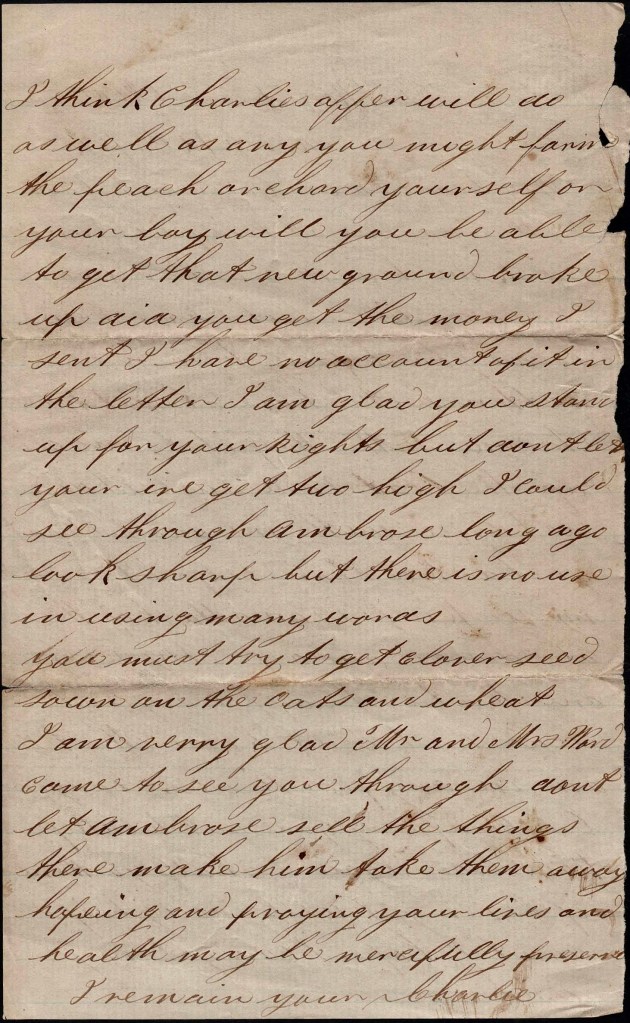 I think Charlies offer will do
as well as any you might farm
the peach orchard yourself or
your boy will you be able
to get that new ground broke
up did you get the money I
sent I have no account of it in
the letter I am glad you stand
up for your Rights but dont let
your ire get two high I could
see through Ambrose long ago
look sharp but there is no use
in using many words
you must try to get clover seed
sown on the oats and wheat
I am verry glad Mr and Mrs Ward
came to see you through dont
let Ambrose sell the things
there make him take them away
hopeing and praying your lives and
health may be mercifully preserved
I remain your Charlie